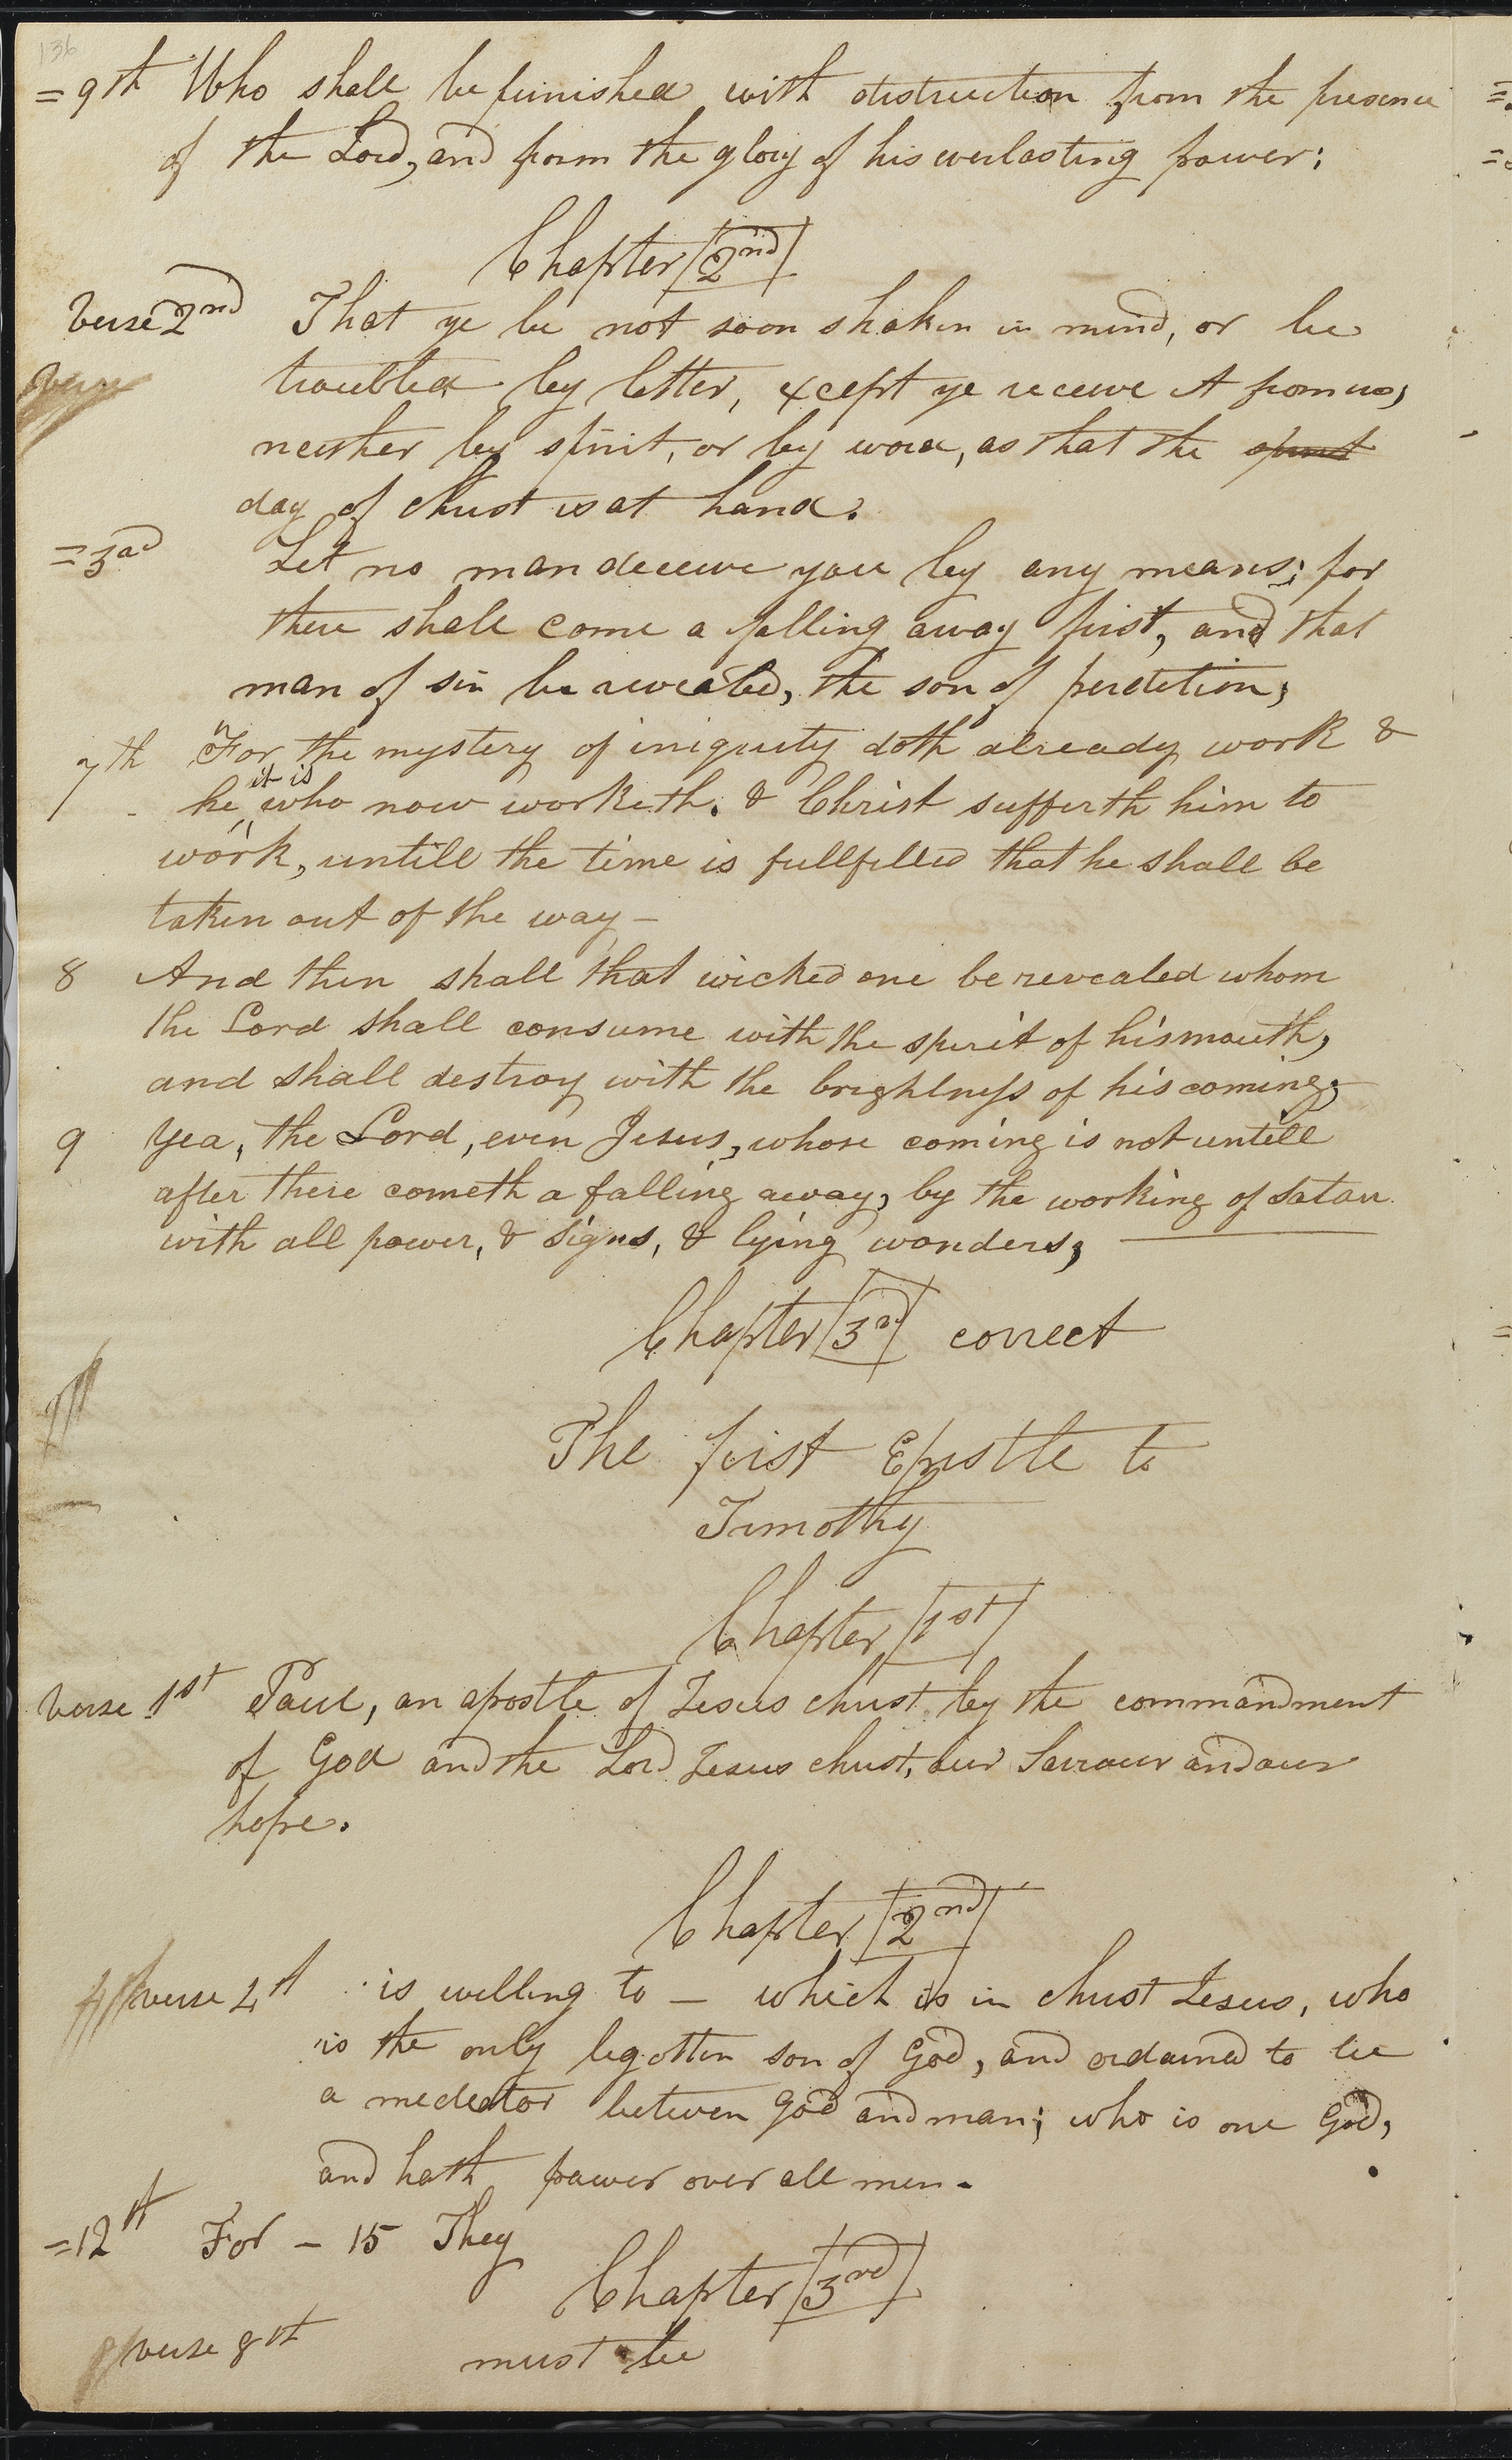 136
=9th Who shall be punished with distruction from the presence
of the Lord, and from the glory of his everlasting power;
Chapter 2nd
Verse 2nd That ye be not soon shaken in mind, or be
troubled by letter, except ye receive it from us,
neither by spirit, or by word, as that the spirit
day of Christ is at hand.
=3rd Let no man deceive you by any means; for
there shall come a falling away first, and that
man of sin be revealed, the son of perdition;
7th For the mystery of iniquity doth already work &
it is
he who now worketh, & Christ sufferth him to
work, untill the time is fullfilled that he shall be
taken out of the way—
8 And then shall that wicked one be revealed whom
the Lord shall consume with the spirit of his mouth,
and shall destroy with the brightness of his coming;
9 Yea, the Lord, even Jesus, whose coming is not untill
after there cometh a falling away, by the working of Satan
with all power, & signs, & lying wonders,
Chapter 3rd correct
The first Epistle to
Timothy
Chapter 1st
Verse 1st Paul, an apostle of Jesus Christ by the commandment
of God and the Lord Jesus Christ, our Saviour and our
hope.
Chapter 2nd
verse 4th is willing to — which is in Christ Jesus, who
is the only begotten son of God, and ordained to be
a mediator between God and man; who is one God,
and hath power over all men.
=12th For — 15 They
Chapter 3rd
verse 8th must be